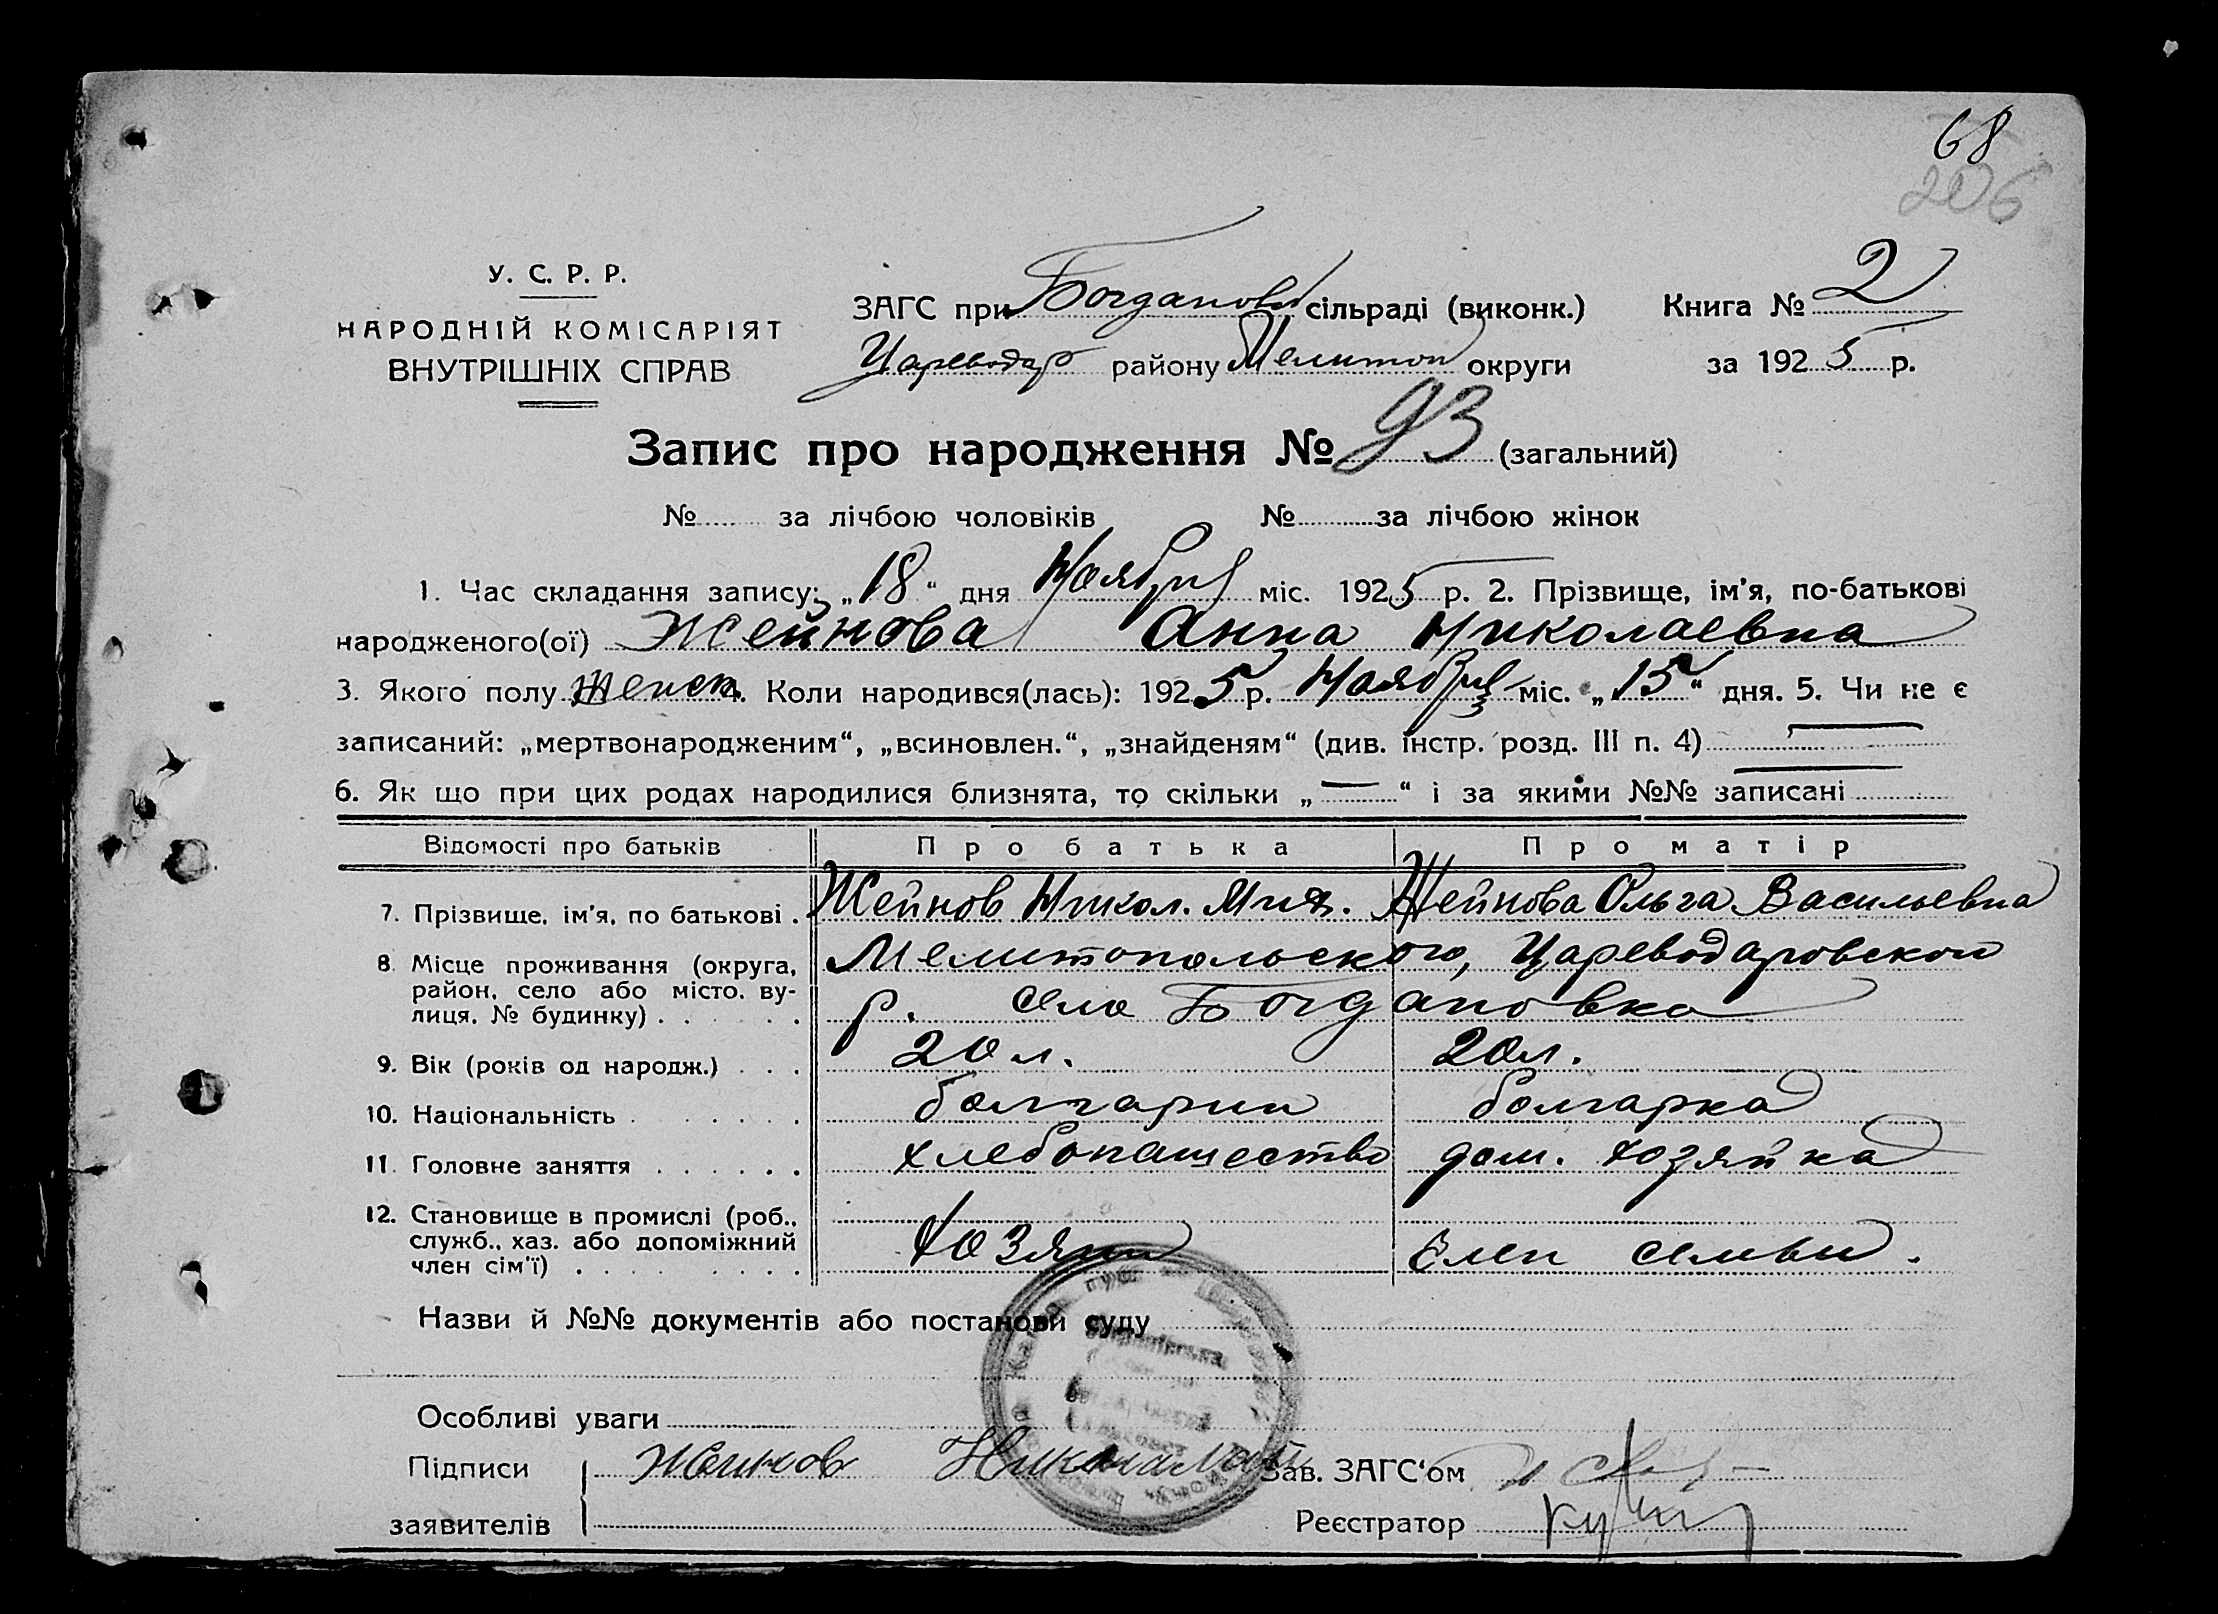 68
206
У. С. Р. Р.
НАРОДНІЙ КОМІСАРІЯТ
ВНУТРІШНІХ СПРАВ
ЗАГС при Богданов сільраді (виконк.) Книга № 2
Цареводар району Мелитоп округи за 1925 р.
Запис про народження № 93 (загальний)
№ за лічбою чоловіків № за лічбою жінок
1. Час складання запису: „18“ дня Ноября міс. 1925 р. 2. Прізвище, ім'я, по-батькові
народженого(ої) Жейнова Анна Николаевна
3. Якого полу Женск 4. Коли народився(лась): 1925 р. Ноября міс. „15“ дня. 5. Чи не є
записаний: „мертвонародженим“, „всиновлен.“, „знайденям“ (див. інстр. розд. III п. 4) —
6. Як що при цих родах народилися близнята, то скільки „—“ і за якими №№ записані —
Відомості про батьків Про батька Про матір
7. Прізвище, ім'я, по батькові . Жейнов Никол. Жейнова Ольга Васильевна
8. Місце проживання (округа, район, село або місто, вулиця, № будинку) . Мелитопольского, Цареводаровского
р. село Богдановка
9. Вік (років од народж.) . . . 20 л. 20 л.
10. Національність . болгарин болгарка
11. Головне заняття . хлебопашество дом. хозяйка
12. Становище в промислі (роб., служб., хаз. або допоміжний член сім'ї) . хозяин Член семьи.
Назви й №№ документів або постанови суду
Особливі уваги
Підписи Жейнов Зав. ЗАГС'ом
заявителів Реєстратор